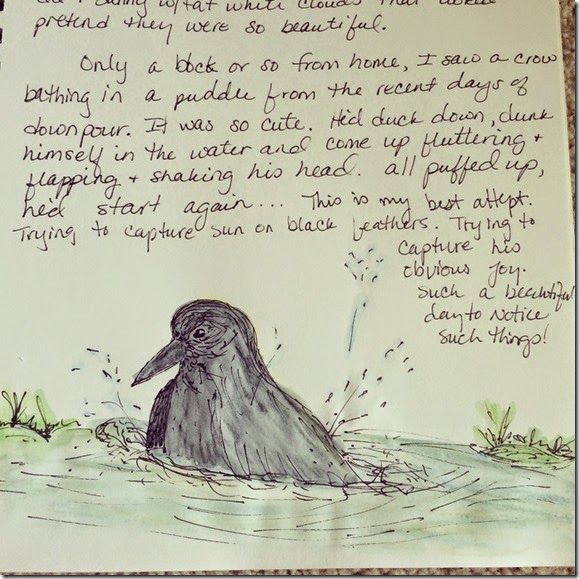 pretend they were so beautiful.
Only a block or so from home, I saw a crow
bathing in a puddle from the recent days of
downpour. It was so cute. He'd duck down, dunk
himself in the water and come up fluttering +
flapping + shaking his head. all puffed up,
he'd start again... This is my best attept.
Trying to capture sun on black feathers. Trying to
capture his
obvious joy.
Such a beautiful
day to notice
such things!